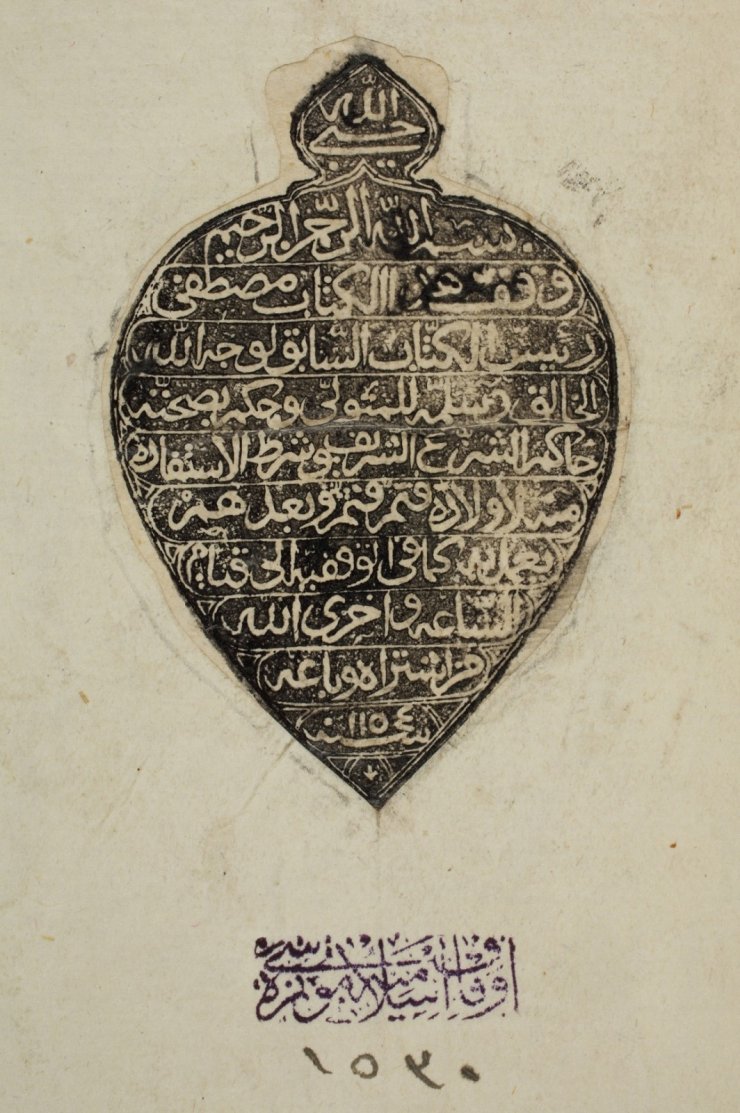 حسبي الله
بسم الله الرحمن الرحيم
وقف هذا الكتاب مصطفى
رئيس الكتّاب السّابق لوجه الله
الخالق وسلّمه للمتولّى وحكم بصحّته
حاكم الشرع الشريف بشرط الاستفادة
منه لاولاده ثم وبعدهم
يعمل به كما فى الوقفيه الى قيام
السّاعه واخزى الله
من اشتراه وباعه
سنه ١١٥٤
اوقاف اسلاميه موزه سى
١٥٣٠